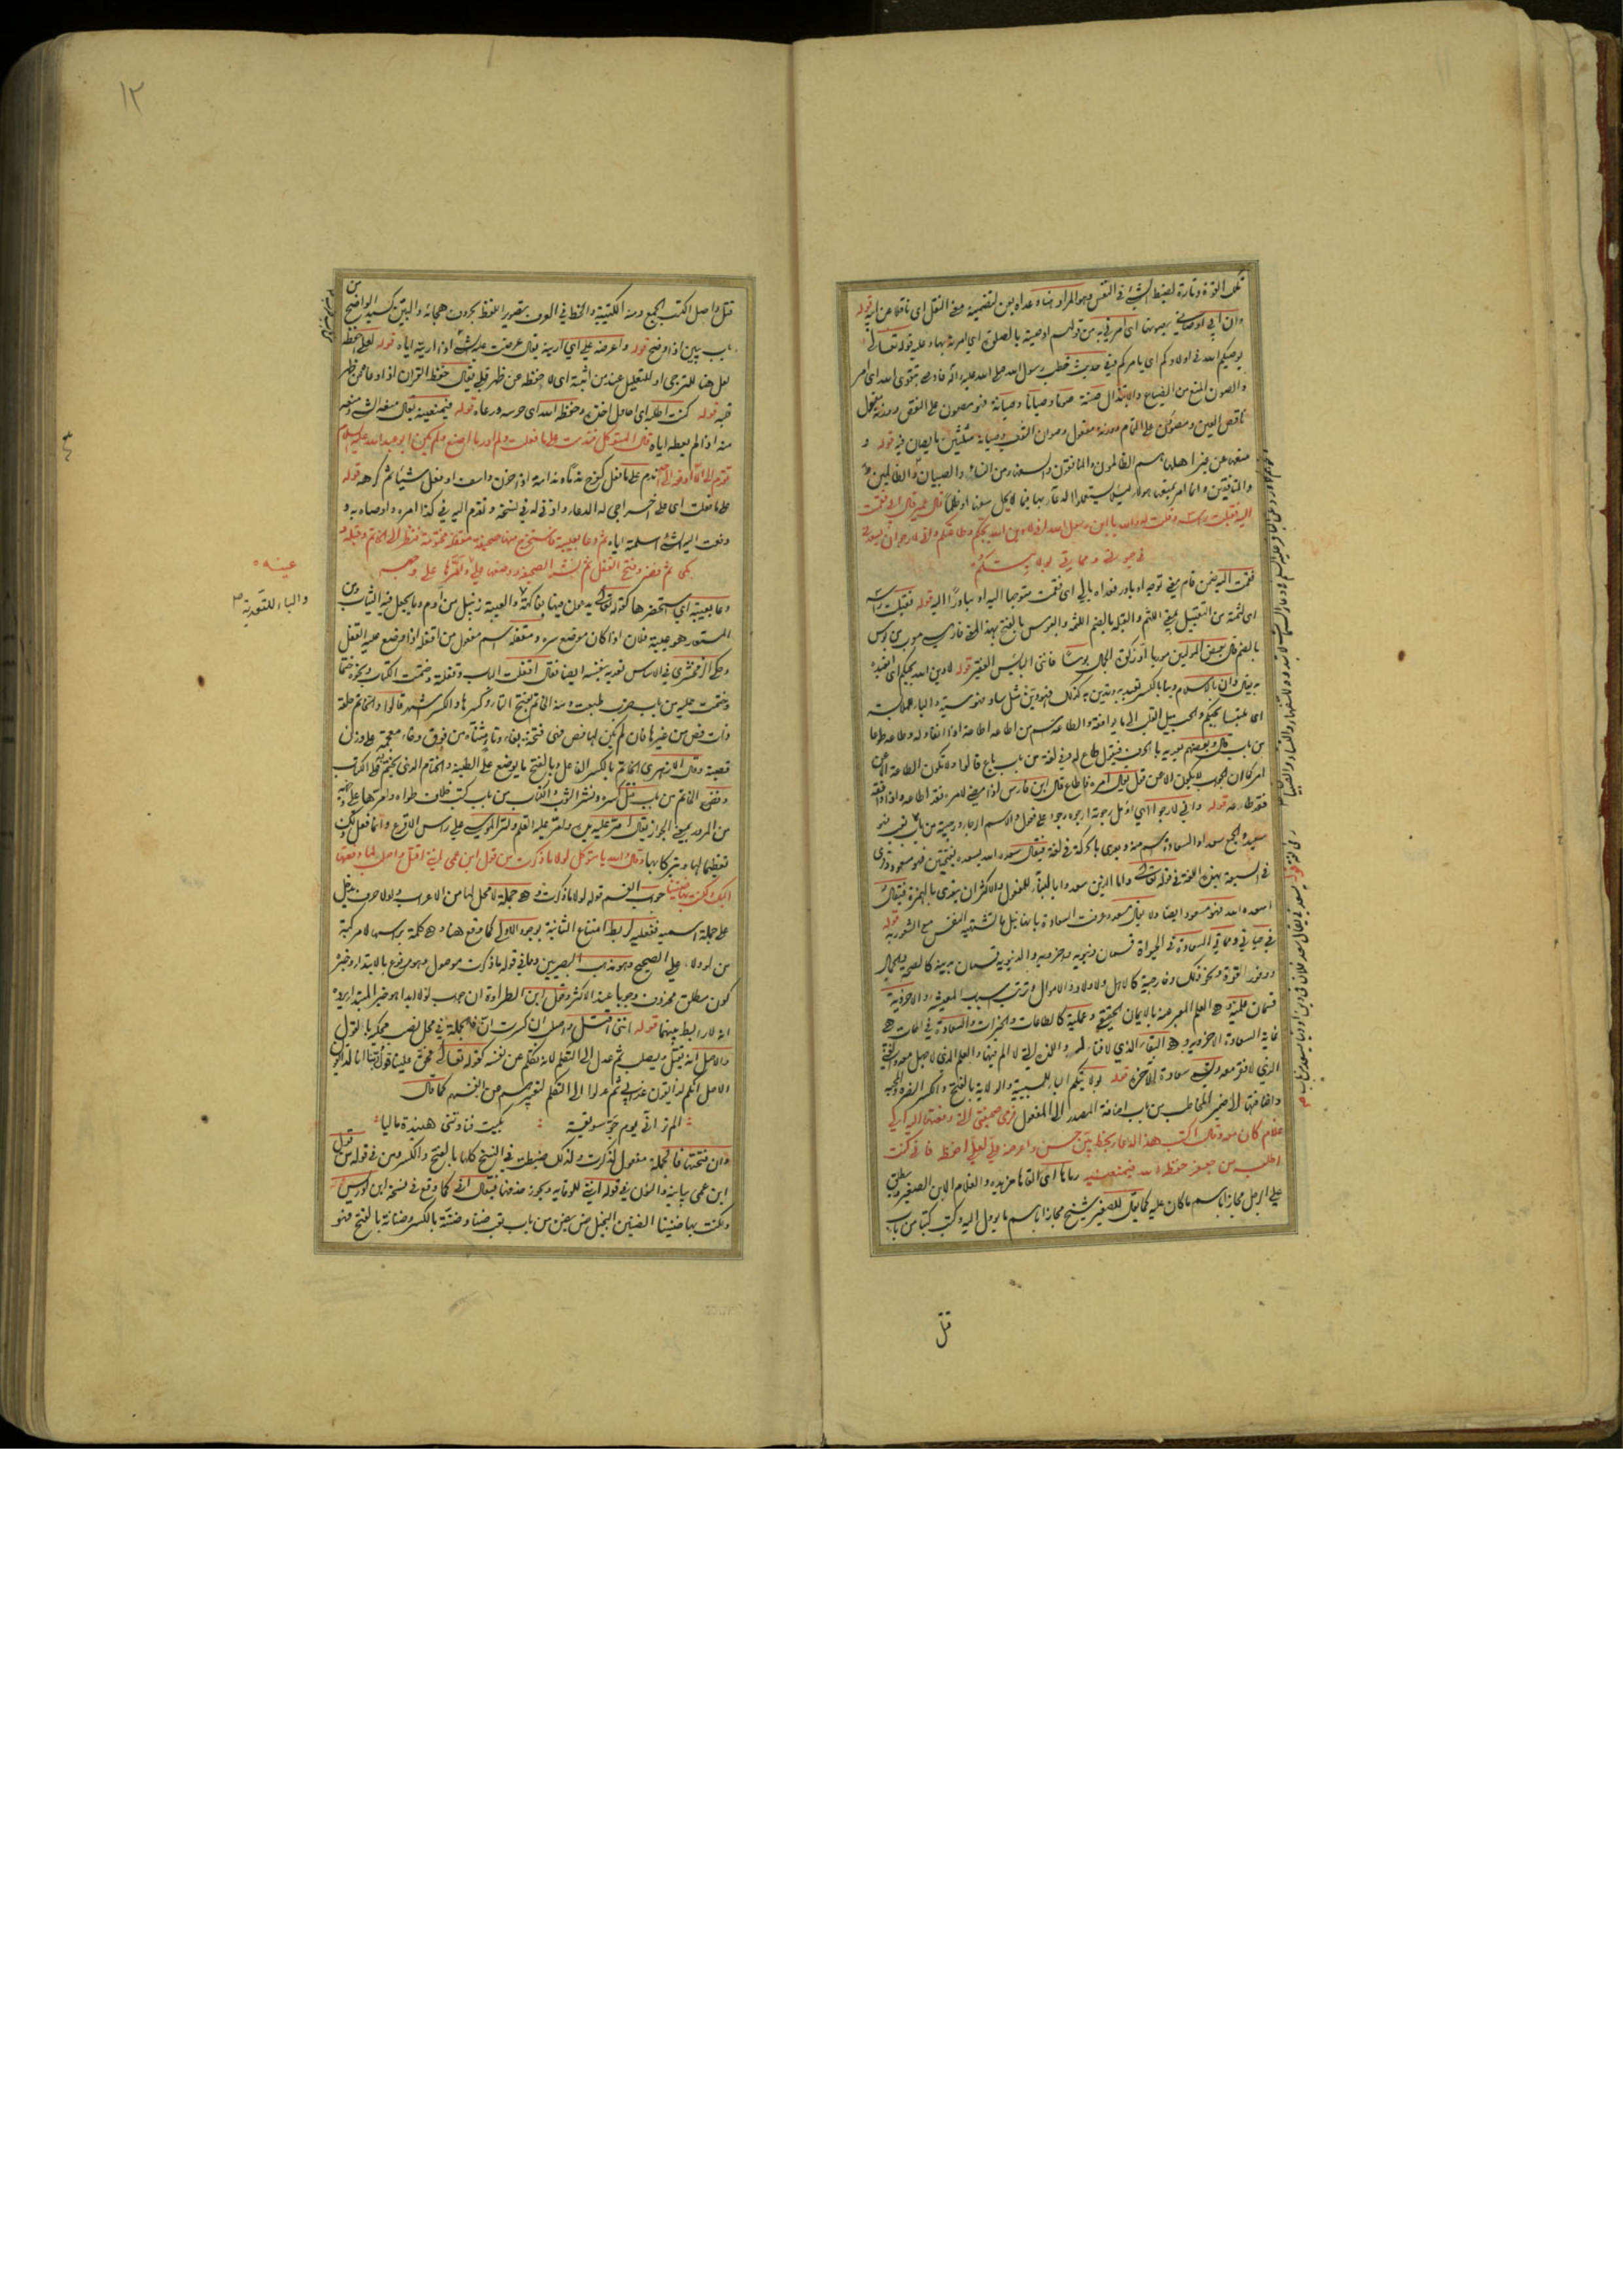 تلك القوة وتارة لضبط الشيء في النفس وهو المراد هنا وعداه بمن لتضمينه معنى النقل اي ناقلا عن ابيه قوله
وان ابي اوصاني بصونها اي امرني به من قولهم اوصيته بالصلوة اي امرته بها وعليه قوله تعالى
يوصيكم الله في اولادكم اي يامركم وفي حديث خطب رسول الله صلى الله عليه وآله فاوصى بتقوى الله اي امر
والصون المنع من الضياع والابتذال صنته صونا وصيانا وصيانة فهو مصون على النقص ووزنه مفول
ناقص العين ومصوون على التمام ووزنه مفعول وصوان الثوب وصيانه مثلثين ما يصان فيه قوله و
منعها عن غير اهلها هم الظالمون والمنافقون والسفهاء من النساء والصبيان والظالمين
والمنافقين وانما امر بمنعها هؤلاء لئلا يستعملوا الدعاء بها فيما لا يحل سفها او ظلما قال عمير قال ابي فقمت
اليه فقبلت راسه وقلت له والله يا ابن رسول الله اني لادين الله بحبكم وطاعتكم واني لارجو ان يسعدني
في حيوتي ومماتي بولايتكم
فقمت اليه ضمن قام معنى توجه او بادر فعداه بالى اي فقمت متوجها اليه او مبادرا اليه قوله فقبلت راسه
اي لثمته من التقبيل بمعنى اللثم والقبلة بالضم اللثمة والبوس بالفتح بهذا المعنى فارسي معرب بوس
بالضم قال بعض المولدين موريا او زكوة الجمال بوسا فانني البائس الفقير قوله لادين الله بحبكم اي اتعبده
به يقال دان بالاسلام دينا بالكسر تعبد به وتدين به كذلك فهو دين مثل ساد فهو سيد والباء للملابسة
اي متلبسا بحبكم والحب ميل القلب الى ما يوافقه والطاعة اسم من اطاعه اطاعة اذا انقاد له وطاعه طوعا
من باب قال وبعضهم يعديه بالحرف فيقول طاع له وفي لغة من باب باع قالوا ولا تكون الطاعة الا عن
امر كما ان الجواب لا يكون الا عن قول يقال امره فاطاع قال ابن فارس اذا مضى لامره فقد اطاعه واذا وافقه
فقد طاوعه قوله واني لارجو اي اؤمل رجوته ارجوه رجوا على فعول والاسم الرجاء ورجيته من باب تعب فهو
سعيد والجمع سعداء والسعادة اسم منه ويعدى بالحركة في لغة فيقال سعده الله يسعده بفتحتين فهو مسعود وقرئ
في السبعة بهذه اللغة في قوله تعالى واما الذين سعدوا بالبناء للمفعول والاكثر ان يتعدى بالهمزة فيقال
اسعده الله فهو مسعود ايضا ولا يقال مسعد وعرفت السعادة بانها نيل ما تشتهيه النفس مع الشعور به قوله
في حياتي ومماتي السعادة في الحيوة قسمان دنيوية واخروية والدنيوية قسمان بدنية كالصحة والجمال
ووفور القوة ونحو ذلك وخارجية كالاهل والاولاد والاموال وترتب سبب المعيشة والاخروية
قسمان علمية وهي العلم المعبر عنه بالايمان الحقيقي وعملية كالطاعات والخيرات والسعادة في الممات هي
غاية السعادة الاخروية وهي البقاء الذي لا فناء له واللذة التي لا الم فيها والعلم الذي لا جهل معه والغنى
الذي لا فقر معه وهي سعادة الآخرة قوله بولايتكم الباء للسببية والولاية بالفتح والكسر النصرة والمحبة
واضافتها الى ضمير المخاطب من باب اضافة المصدر الى المفعول فرمى صحيفتي التي دفعتها اليه الى
غلام كان معه وقال اكتب هذا الدعاء بخط بين حسن واعرضه علي لعلي احفظه فاني كنت
اطلبه من جعفر حفظه الله فيمنعنيه رماها اي القاها من يده والغلام الابن الصغير ويطلق
على الرجل مجازا باسم ما كان عليه كما يقال للصغير شيخ مجازا باسم ما يؤول اليه وكتب كتبا من باب
قتل
١٢
قتل واصل الكتب الجمع ومنه الكتيبة والخط في العرف تصوير اللفظ بحروف هجائه والبين كسيد الواضح من
باب بين اذا وضح قوله واعرضه علي اي ارنيه يقال عرضت عليه الشيء اذا اريته اياه قوله لعلي احفظه
لعل هنا للترجي او للتعليل عند من اثبته اي لاحفظه عن ظهر قلبي يقال حفظ القران اذا وعاه عن ظهر
قلبه قوله كنت اطلبه اي احاول اخذه وحفظه الله اي حرسه ورعاه قوله فيمنعنيه يقال منعه الشيء ومنعه
منه اذا لم يعطه اياه قال المتوكل فندمت على ما فعلت ولم ادر ما اصنع ولم يكن ابو عبد الله عليه السلام
تقدم الي ان لا ادفعه الى احد ندم على ما فعل كفرح ندما وندامة اذا حزن واسف او فعل شيئا ثم كرهه قوله
على ما فعلت اي على اخراجي له الدعاء واذني له في نسخه وتقدم اليه في كذا امره واوصاه به و
دفعت اليه الشيء اسلمته اياه ثم دعا بعيبة فاستخرج منها صحيفة مقفلة مختومة فنظر الى الخاتم وقبله و
بكى ثم فضه وفتح القفل ثم نشر الصحيفة ووضعها على عينه وامرها على وجهه
دعا بعيبة اي استحضرها كقوله تعالى يدعون فيها بفاكهة والعيبة زنبيل من ادم وما يجعل فيه الثياب ومن
المستعار هو عيبة فلان اذا كان موضع سره ومقفلة اسم مفعول من اقفله اذا وضع عليه القفل
وحكى الزمخشري في الاساس تعديه بنفسه ايضا فقال اقفلت الباب وقفلته وختمت الكتاب ونحوه ختما
وختمت عليه من باب ضرب طبعت ومنه الخاتم بفتح التاء وكسرها والكسر اشهر قالوا والخاتم حلقة
ذات فص من غيرها فان لم يكن لها فص فهي فتخة بفاء وتاء مثناة من فوق وخاء معجمة على وزن
قصبة وقال الازهري الخاتم بالكسر الفاعل وبالفتح ما يوضع على الطينة والختام الذي يختم به على الكتاب
وفض الخاتم من باب قتل كسره ونشر الثوب والكتاب من باب كتب خلاف طواه وامرها على وجهه
من المرور بمعنى الجواز يقال امر عليه يده وامر عليه القلم وامر الموسى على راس الاقرع وانما فعل ذلك
تعظيما لها وتبركا بها وقال والله يا متوكل لولا ما ذكرت من قول ابن عمي انني اقتل واصلب لما دفعتها
اليك ولكنت بها ضنينا جواب القسم قوله لولا ما ذكرت وهي جملة لا محل لها من الاعراب ولولا حرف يدخل
على جملة اسمية ففعلية لربط امتناع الثانية بوجود الاولى كما وقع هنا وهي كلمة براسها لا مركبة
من لو ولا على الصحيح وهو مذهب البصريين وما في قوله ما ذكرت موصول وهو مرفوع بالابتداء وخبره
كون مطلق محذوف وجوبا عند الاكثر ونقل ابن الطراوة ان جواب لولا ابدا هو خبر المبتدا يرده
انه لا رابط بينهما قوله انني اقتل واصلب ان كسرت ان فالجملة في محل نصب محكية بالقول
والاصل انه يقتل ويصلب ثم عدل الى التكلم لانه تكلم عن نفسه كقوله تعالى فحق علينا قول ربنا انا لذائقون
الاصل انكم لذائقون عذابي ثم عدلوا الى التكلم لتعبيرهم عن انفسهم كما قال
الم تر اني يوم جو سويقة : بكيت فنادتني هنيدة ماليا
وان فتحتها فالجملة مفعول لذكرت ولذلك ضبطت في النسخ كلها بالفتح والكسر ومن في قوله من قول
ابن عمي بيانية والنون في قوله انني للوقاية ويجوز حذفها فيقال اني كما وقع في نسخة ابن ادريس
ولكنت بها ضنينا الضنين البخيل ضن يضن من باب تعب ضنا وضنة بالكسر وضنانة بالفتح فهو
عينيه
والباء للتعدية